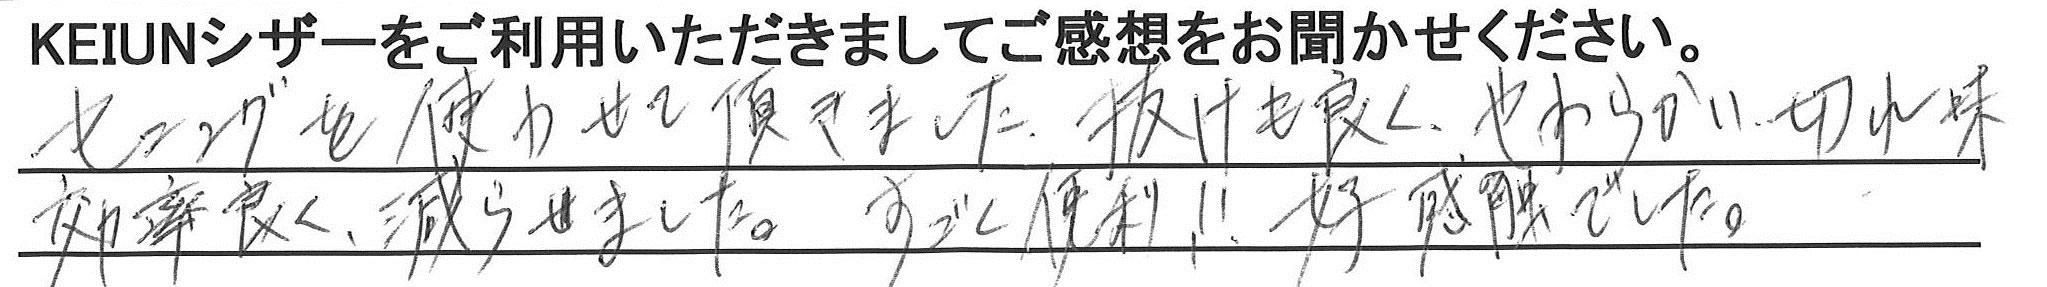 KEIUNシザーをご利用いただきましてご感想をお聞かせください。
セニングを使わせて頂きました、抜けも良く、やわらかい切れ味
効率良く、減らせました。すごく便利!! 好感触でした。